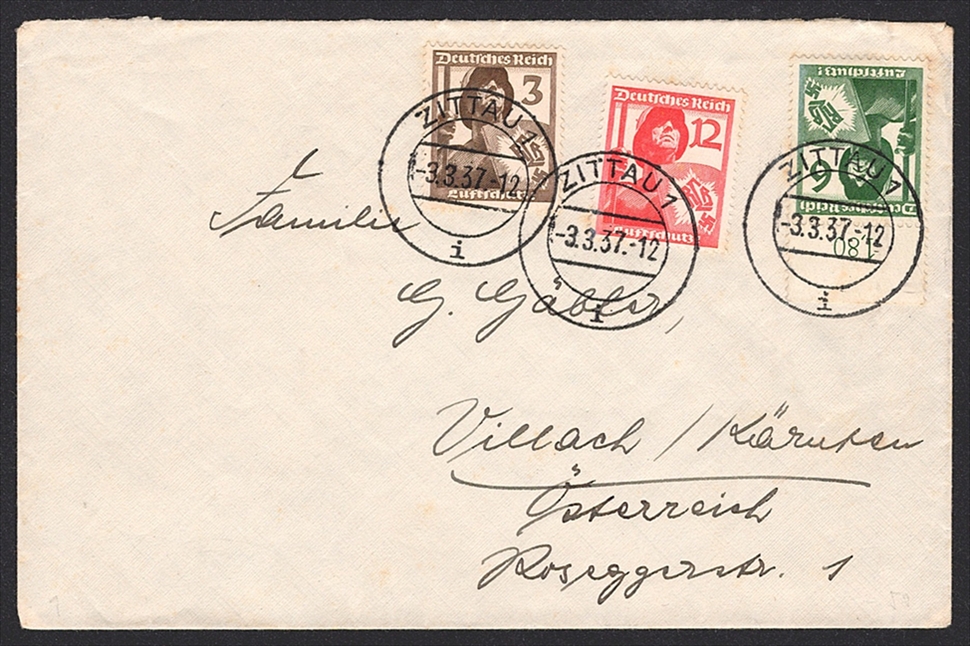 Deutsches Reich
3
Luftschutz
ZITTAU 1
-3.3.37.-12
i
Deutsches Reich
12
Luftschutz
ZITTAU 1
-3.3.37.-12
i
Luftschutz
6
Deutsches Reich
180
ZITTAU 1
-3.3.37.-12
i
Familie
G. Gäbler,
Villach / Kärnten
Österreich
Roseggerstr. 1